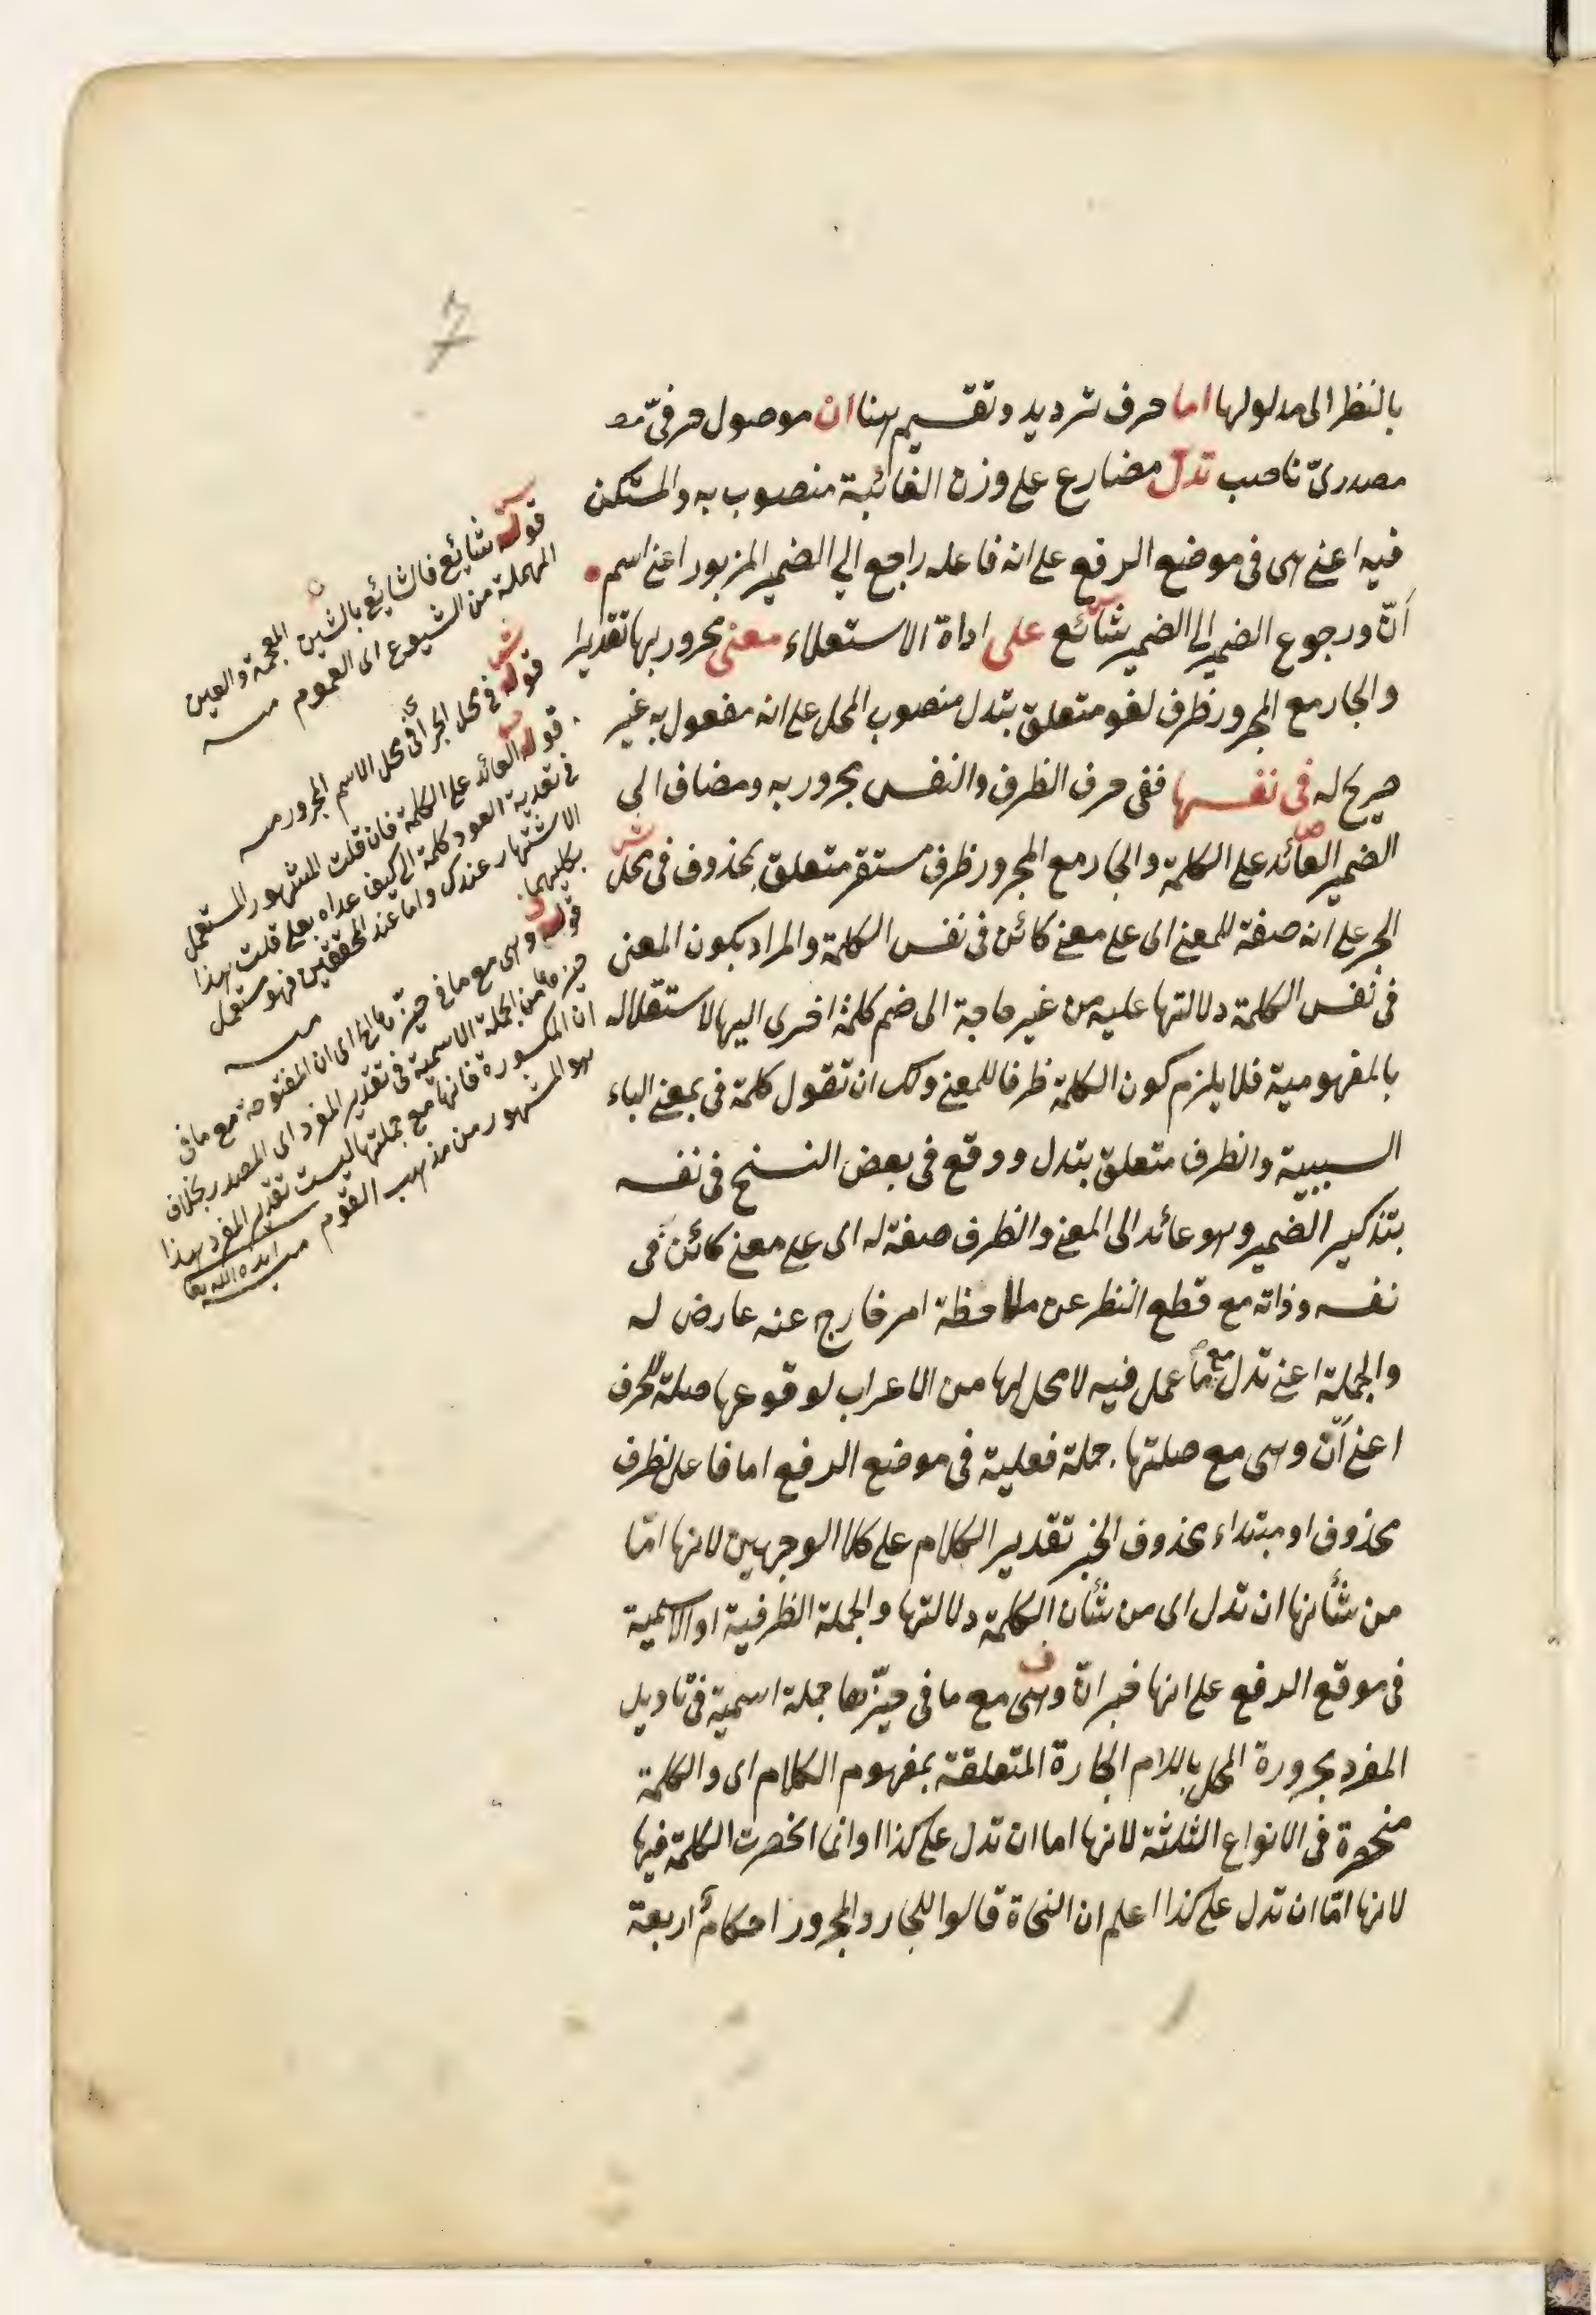 بالنظر الى مدلولها اما حرف ترديد وتقسيم ههنا ان موصول حرفىّ
مصدرىّ ناصب تدلّ مضارع على وزن الغائبة منصوب به والمستكن
فيه اعنى هى فى موضع الرفع على انه فاعله راجع الى الضمير المزبور اعنى اسم
اَنّ ورجوع الضمير الى الضمير شائع على اداة الاستعلاء معنى مجرور بها تقديرا
والجار مع المجرور ظرف لغو متعلق بتدل منصوب المحل على انه مفعول به غير
صريح له فى نفسها ففى حرف الظرف والنفس مجرور به ومضاف الى
الضمير العائد على الكلمة والجار مع المجرور ظرف مستقر متعلق بمحذوف فى محل
الجر على انه صفة للمعنى اى على معنى كائن فى نفس الكلمة والمراد بكون المعنى
فى نفس الكلمة دلالتها عليه من غير حاجة الى ضم كلمة اخرى اليها لاستقلاله
بالمفهومية فلا يلزم كون الكلمة ظرفا للمعنى ولك ان تقول كلمة فى بمعنى الباء
السببية والظرف متعلق بتدل ووقع فى بعض النسخ فى نفسه
بتذكير الضمير وهو عائد الى المعنى والظرف صفة له اى على معنى كائن فى
نفسه وذاته مع قطع النظر عن ملاحظة امر خارج عنه عارض له
والجملة اعنى تدل مع ما عمل فيه لا محل لها من الاعراب لوقوعها صلة للحرف
اعنى اَنّ وهى مع صلتها جملة فعلية فى موضع الرفع اما فاعل لظرف
محذوف او مبتداء محذوف الخبر تقدير الكلام على كلا الوجهين لانها امّا
من شأنها ان تدل اى من شأن الكلمة دلالتها والجملة الظرفية او الاسمية
فى موقع الرفع على انها خبر انّ وهى مع ما فى حيّزها جملة اسمية فى تاويل
المفرد مجرورة المحل باللام الجارة المتعلقة بمفهوم الكلام اى والكلمة
منحصرة فى الانواع الثلثة لانها اما ان تدل على كذا او انما انحصرت الكلمة فيها
لانها امّا ان تدل على كذا اعلم ان النحاة قالوا للجار والمجرور احكامٌ اربعة
قوله شايع فالشايع بالشين المعجمة والعين
المهملة من الشيوع اى العموم منه
قوله فى محل الجر اى فى محل الاسم المجرور منه
قوله العائد على الكلمة فان قلت المشهور المستعمل
فى تعدية العود كلمة الى كيف عداه بعلى قلت هذا
الاشتهار عندك واما عند المحققين فهو مستعمل
بكليهما منه
قوله وهى مع ما فى حيّزها الخ اى ان المفتوحة مع ما فى
حيزها من الجملة الاسمية فى تقدير المفرد اى المصدر بخلاف
ان المكسورة فانها مع جملتها ليست تقدير المفرد هذا
هو المشهور من مذهب القوم منه ايده الله تعا